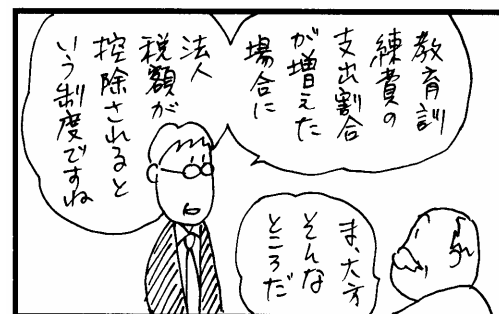 教育訓
練費の
支出割合
が増えた
場合に
法人
税額が
控除されると
いう制度ですね
ま、大方
そんな
ところだ